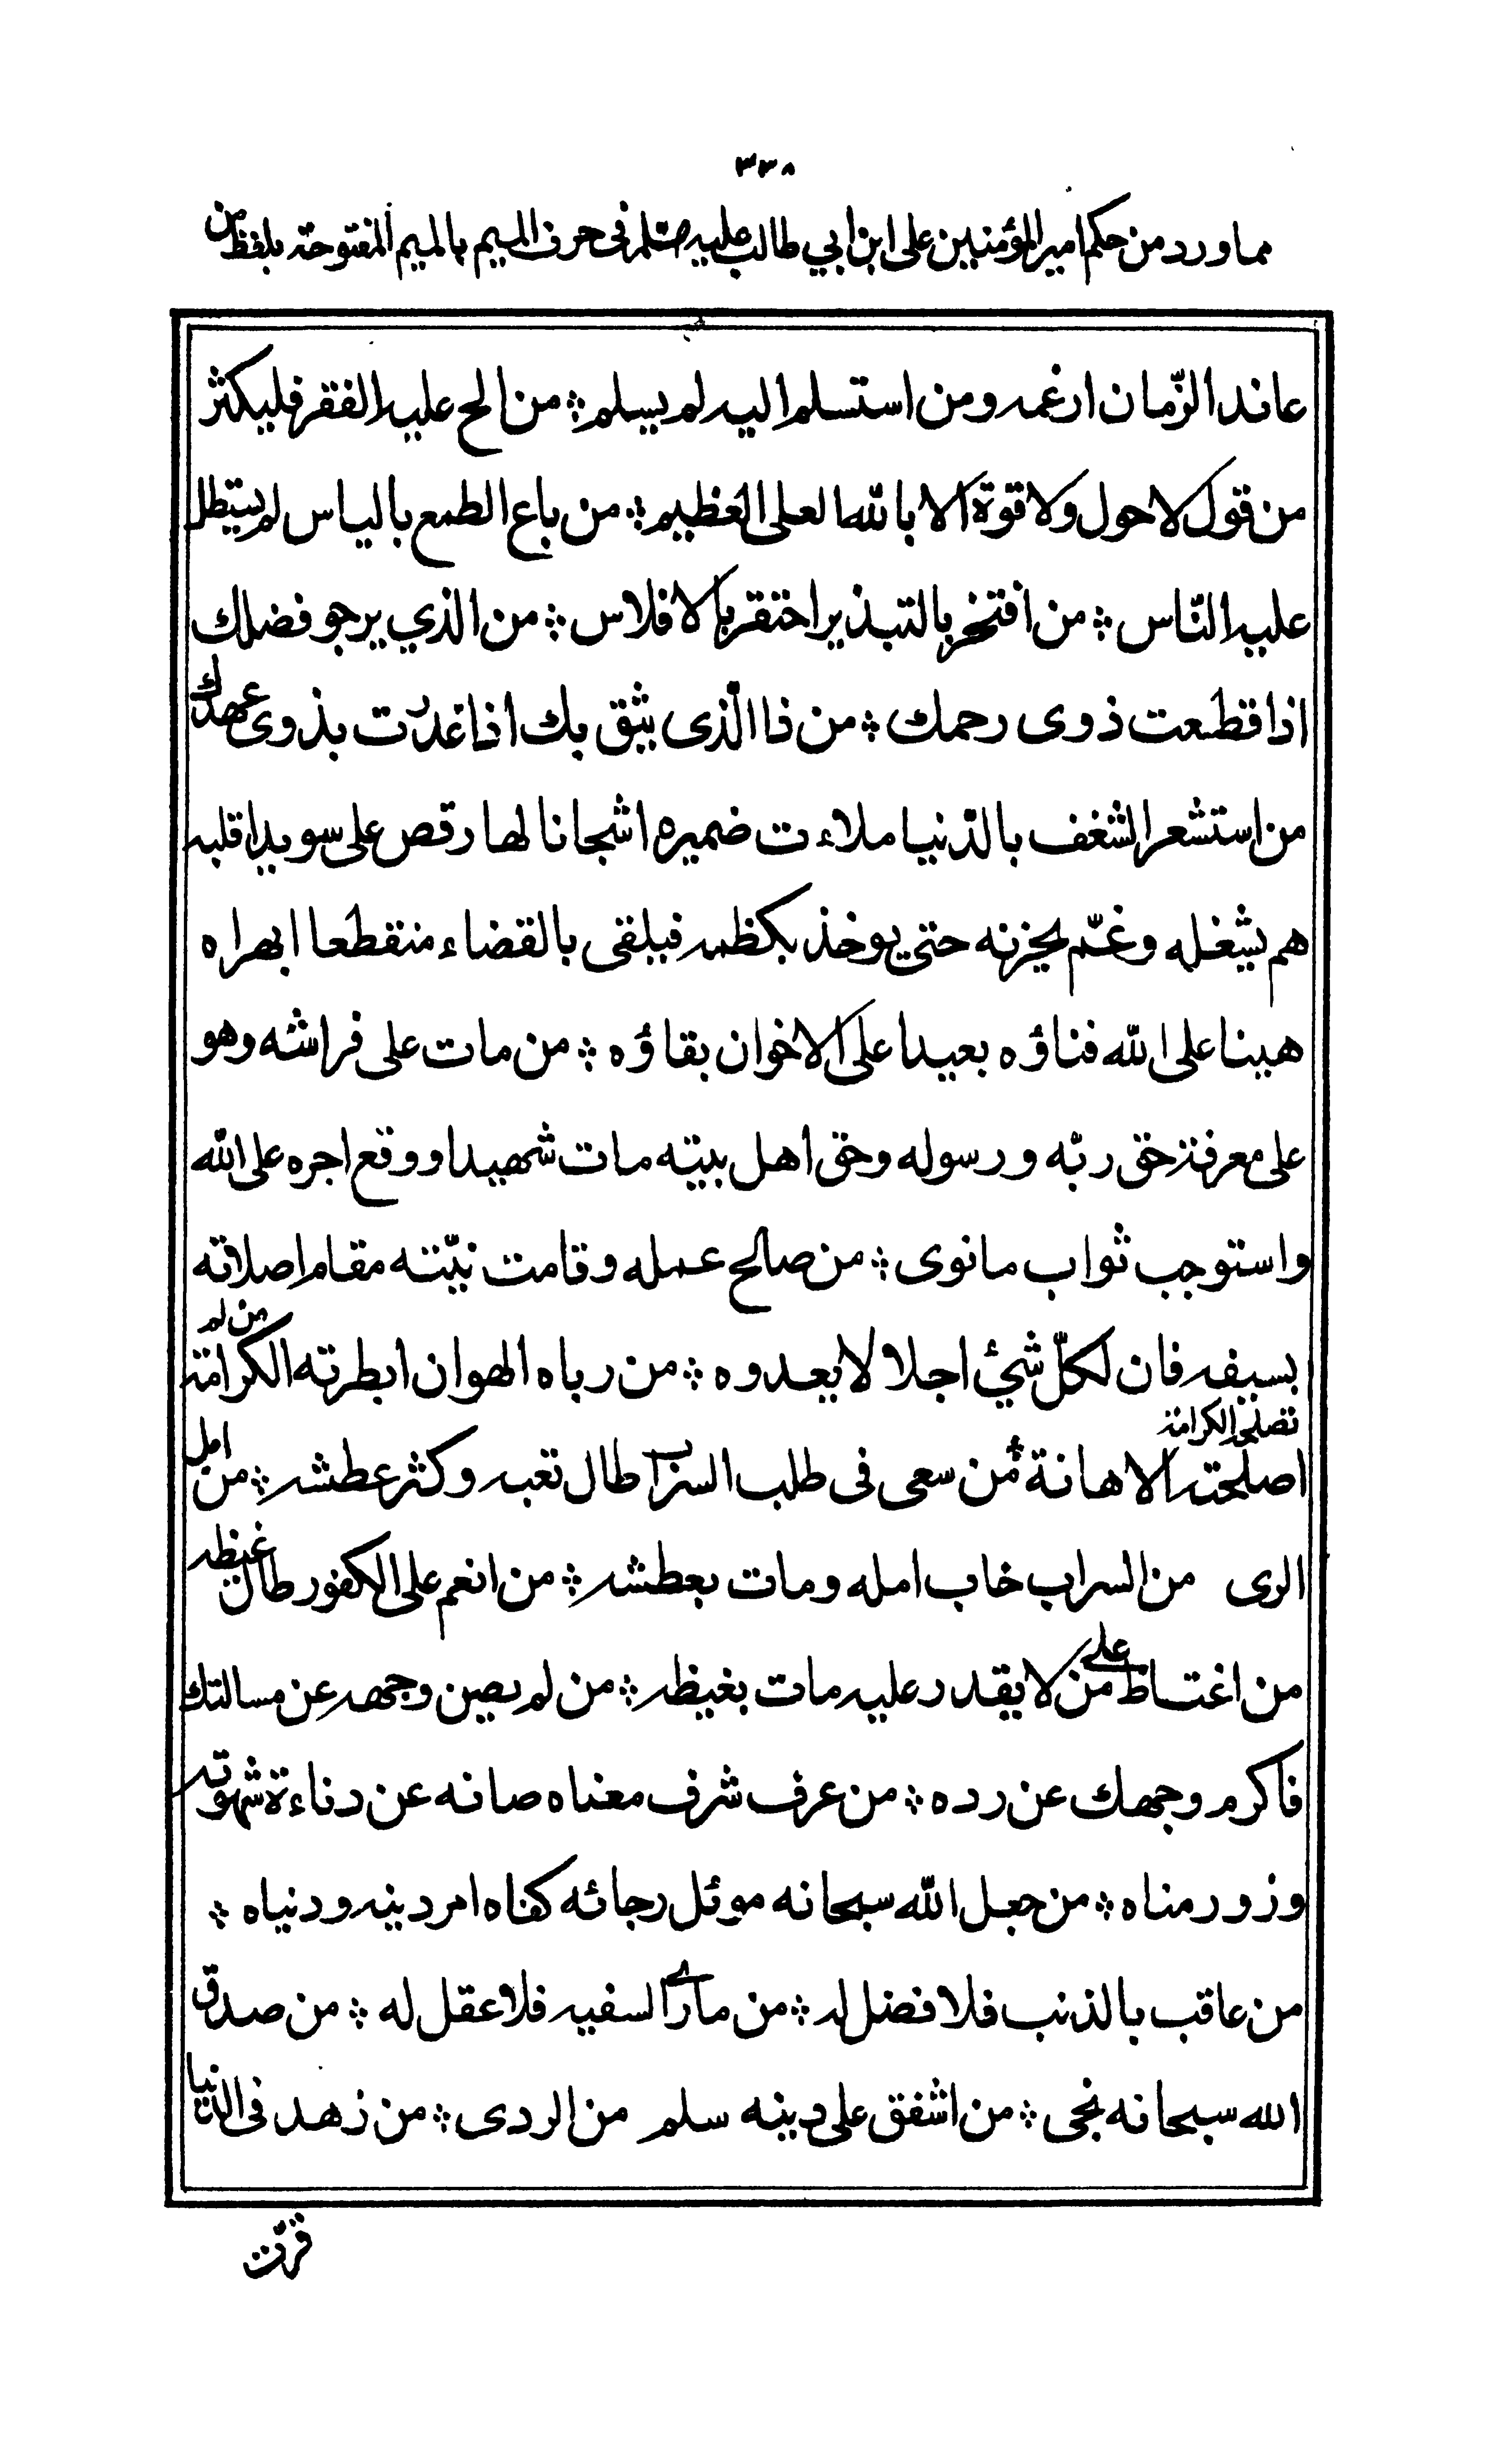 ٣٣٨
مما ورد من حكم امير المؤمنين على ابن ابي طالب عليه السلم فى حرف الميم بالميم المفتوحة بلفظ من
عاند الزّمان ارغمه ومن استسلم اليه لم يسلم ۞ من الح عليه الفقر فليكثر
من قول لا حول ولا قوة الا بالله العلى العظيم ۞ من باع الطمع بالياس لم يستطل
عليه النّاس ۞ من افتخر بالتبذير احتقر بالافلاس ۞ من الذي يرجو فضلك
اذا قطعت ذوى رحمك ۞ من ذا الّذى يثق بك اذا غدرت بذوى عهدك
من استشعر الشغف بالدّنيا ملاءت ضميره اشجانا لها رقص على سويدا قلبه
هم يشغله وغمّ يحزنه حتى يوخذ بكظمه فيلقى بالقضاء منقطعا ابهراه
هينا على الله فناؤه بعيدا على الاخوان بقاؤه ۞ من مات على فراشه وهو
على معرفة حق ربّه ورسوله وحق اهل بيته مات شهيدا ووقع اجره على الله
واستوجب ثواب ما نوى ۞ من صالح عمله وقامت نيّته مقام اصلاته
بسيفه فان لكلّ شئ اجلا لا يعدوه ۞ من رباه الهوان ابطرته الكرامة من لم
تصلحه الكرامة
اصلحته الاهانة ۞ من سعى فى طلب السراب طال تعبه وكثر عطشه ۞ من امل
الرى من السراب خاب امله ومات بعطشه ۞ من انعم على الكفور طال غيظه
من اغتاظ على من لا يقدر عليه مات بغيظه ۞ من لم يصن وجهه عن مسالتك
فاكرم وجهك عن رده ۞ من عرف شرف معناه صانه عن دناءة شهوته
وزور مناه ۞ من جعل الله سبحانه موئل رجائه كفاه امر دينه ودنياه ۞
من عاقب بالذنب فلا فضل له ۞ من مارى السفيه فلا عقل له ۞ من صدق
الله سبحانه نجى ۞ من اشفق على دينه سلم من الردى ۞ من زهد فى الدنيا
قرّت